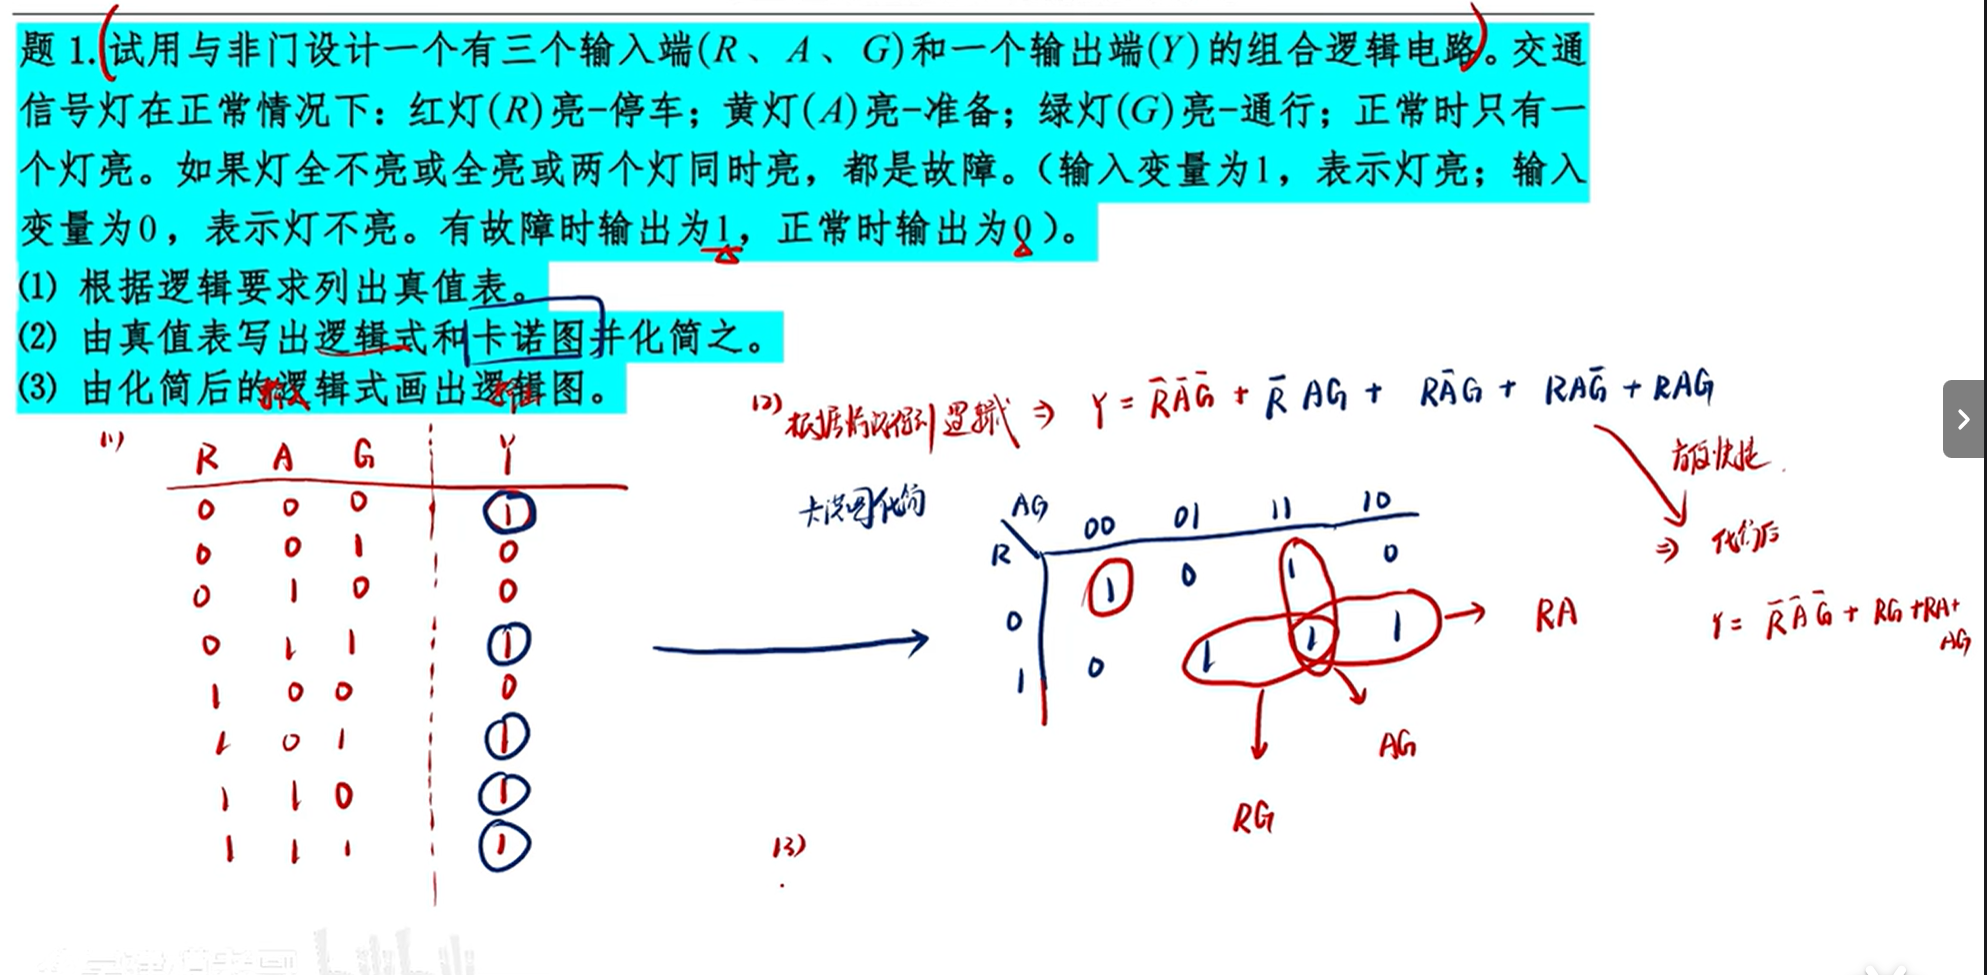 题 1.(试用与非门设计一个有三个输入端(R、A、G)和一个输出端(Y)的组合逻辑电路)。交通
信号灯在正常情况下：红灯(R)亮-停车；黄灯(A)亮-准备；绿灯(G)亮-通行；正常时只有一
个灯亮。如果灯全不亮或全亮或两个灯同时亮，都是故障。（输入变量为1，表示灯亮；输入
变量为0，表示灯不亮。有故障时输出为1，正常时输出为0）。
(1) 根据逻辑要求列出真值表。
(2) 由真值表写出逻辑式和卡诺图并化简之。
(3) 由化简后的逻辑式画出逻辑图。
(1)
R A G Y
0 0 0 1
0 0 1 0
0 1 0 0
0 1 1 1
1 0 0 0
1 0 1 1
1 1 0 1
1 1 1 1
(2) 逻辑式 ⇒ Y = R̄ĀḠ + R̄AG + RĀG + RAḠ + RAG
卡诺图化简
AG 00 01 11 10
R
0 1 0 1 0
1 0 1 1 1
RA
AG
RG
⇒ 化简后
Y = R̄ĀḠ + RG + RA +
AG
(3)